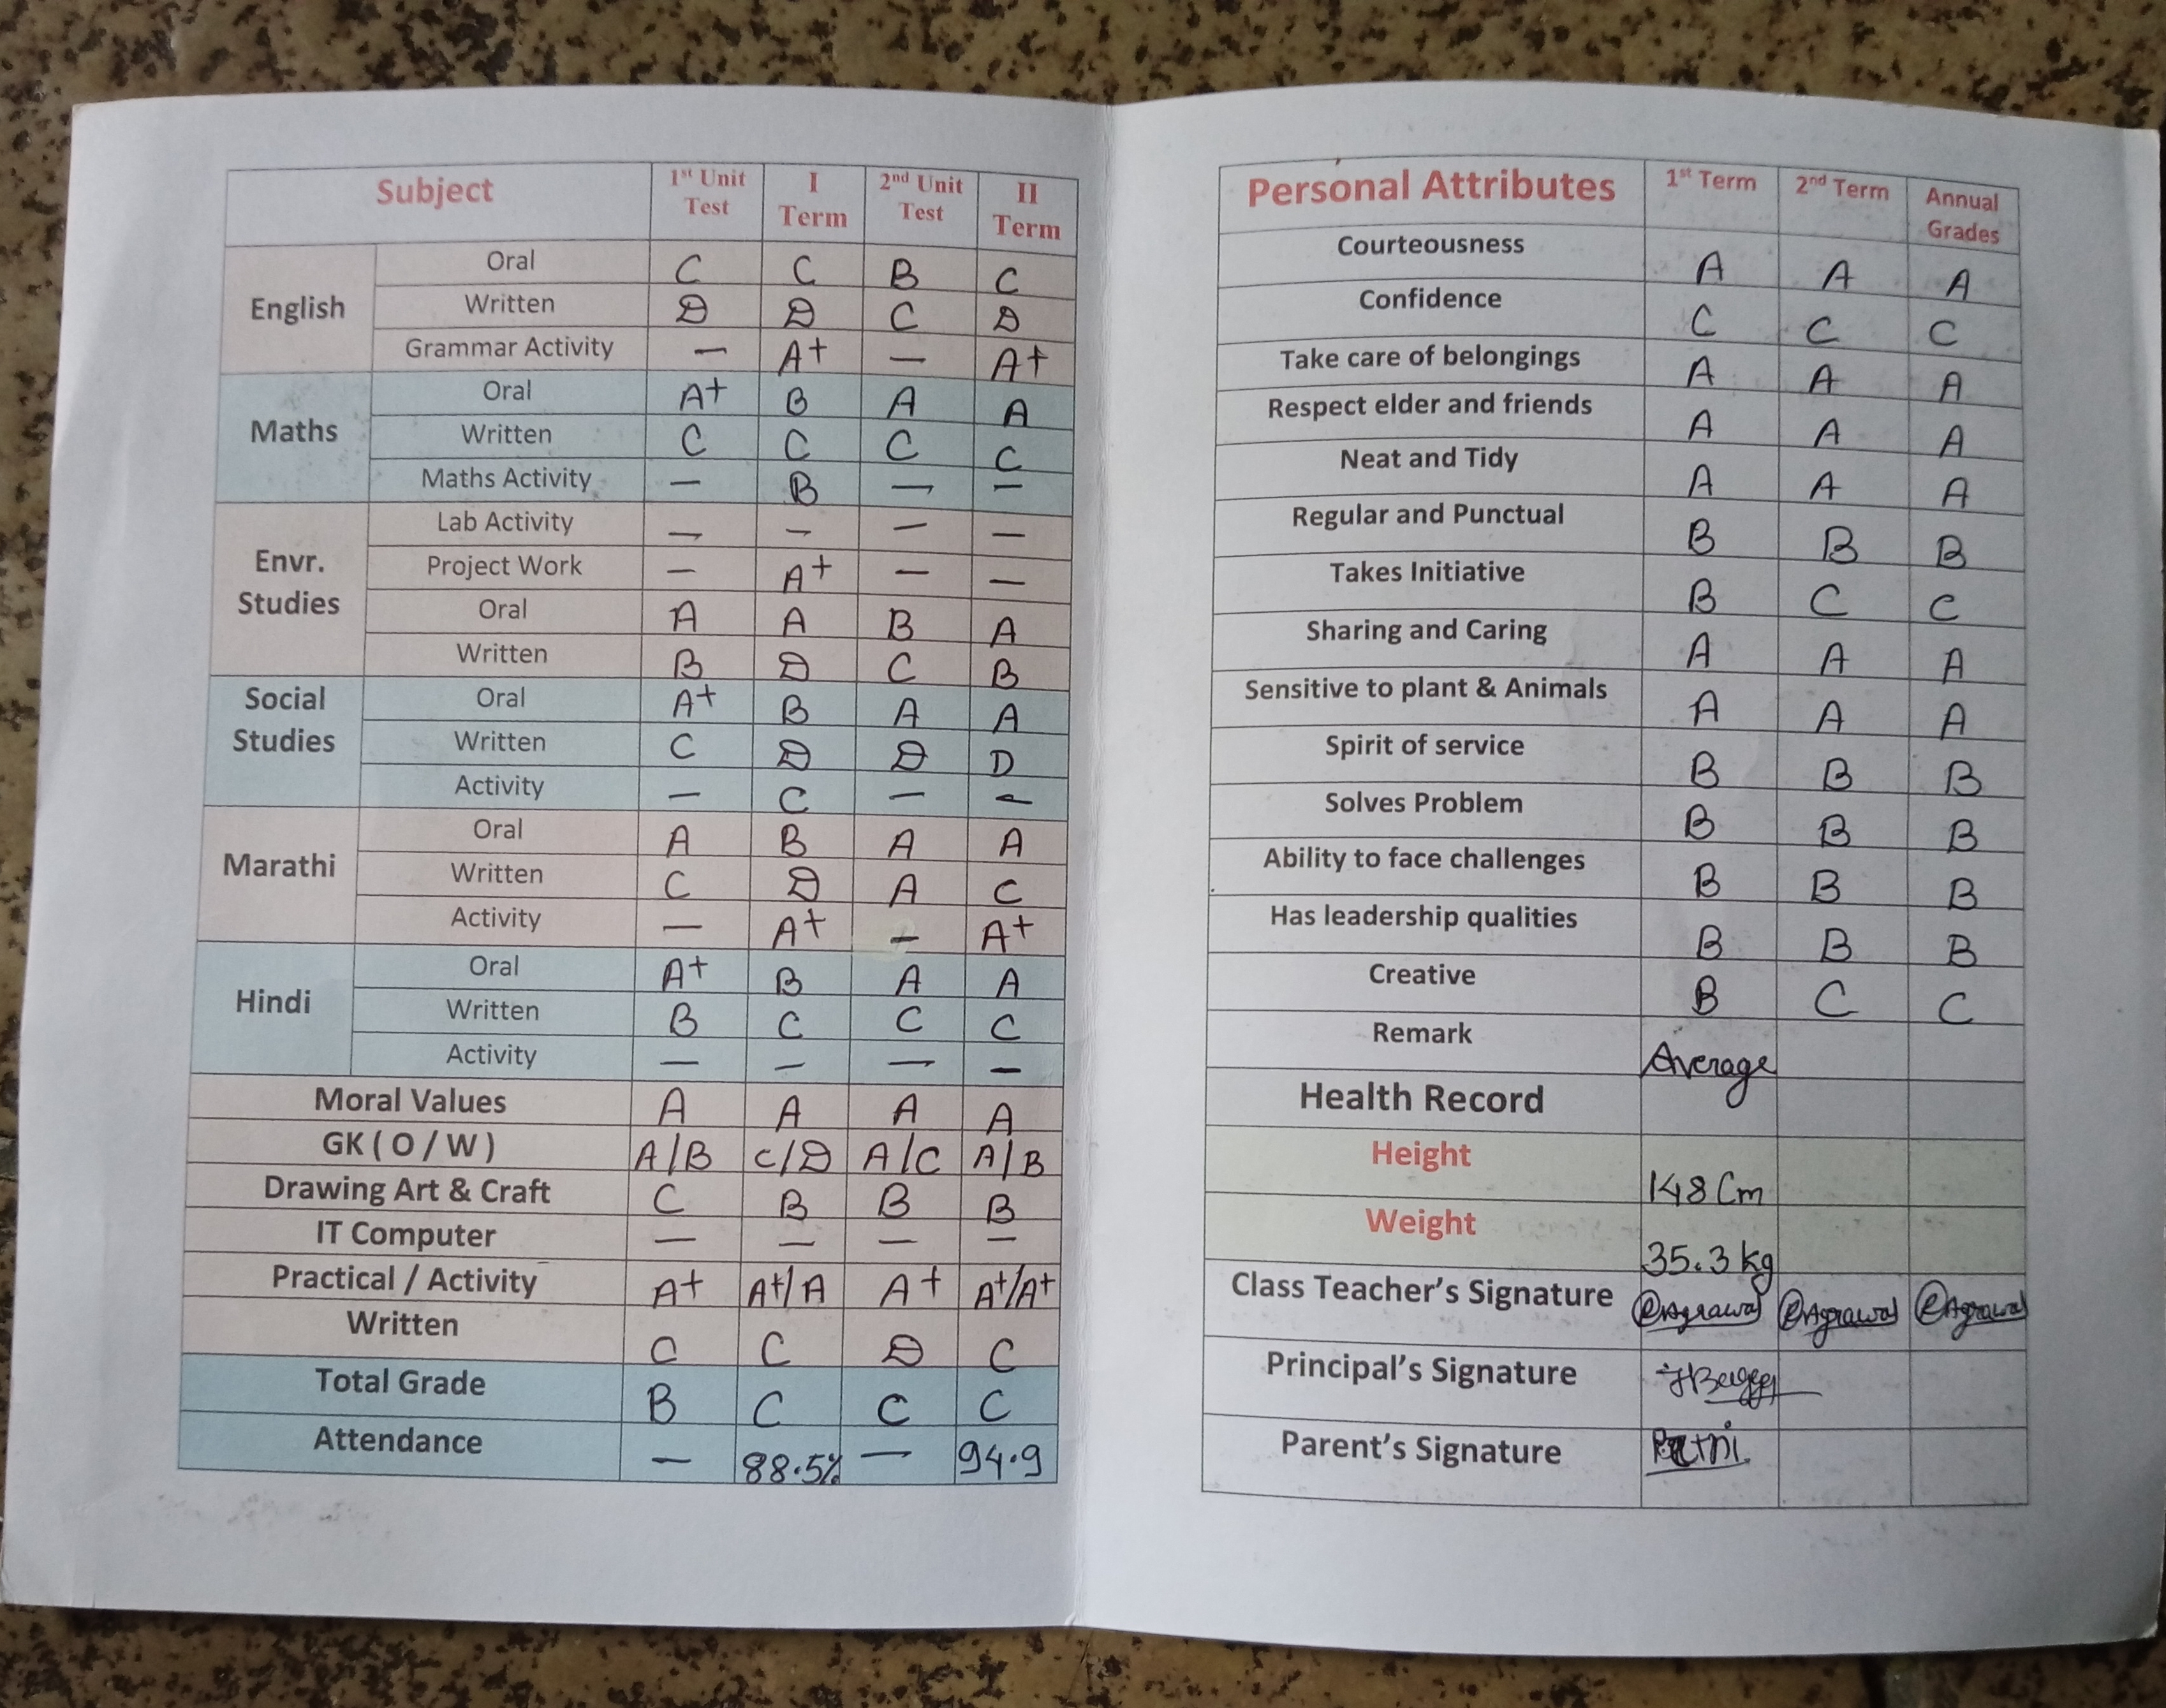 Subject 1st Unit Test I Term 2nd Unit Test II Term
English Oral C C B C
Written D D C D
Grammar Activity — A+ — A+
Maths Oral A+ B A A
Written C C C C
Maths Activity — B — —
Envr. Studies Lab Activity — — — —
Project Work — A+ — —
Oral A A B A
Written B D C B
Social Studies Oral A+ B A A
Written C D D D
Activity — C — —
Marathi Oral A B A A
Written C D A C
Activity — A+ — A+
Hindi Oral A+ B A A
Written B C C C
Activity — — — —
Moral Values A A A A
GK ( O / W ) A/B C/D A/C A/B
Drawing Art & Craft C B B B
IT Computer — — — —
Practical / Activity A+ A+/A A+ A+/A+
Written C C D C
Total Grade B C C C
Attendance — 88.5% — 94.9
Personal Attributes 1st Term 2nd Term Annual Grades
Courteousness A A A
Confidence C C C
Take care of belongings A A A
Respect elder and friends A A A
Neat and Tidy A A A
Regular and Punctual B B B
Takes Initiative B C C
Sharing and Caring A A A
Sensitive to plant & Animals A A A
Spirit of service B B B
Solves Problem B B B
Ability to face challenges B B B
Has leadership qualities B B B
Creative B C C
Remark Average
Health Record
Height 148 Cm
Weight 35.3 kg
Class Teacher's Signature Agrawal Agrawal Agrawal
Principal's Signature
Parent's Signature